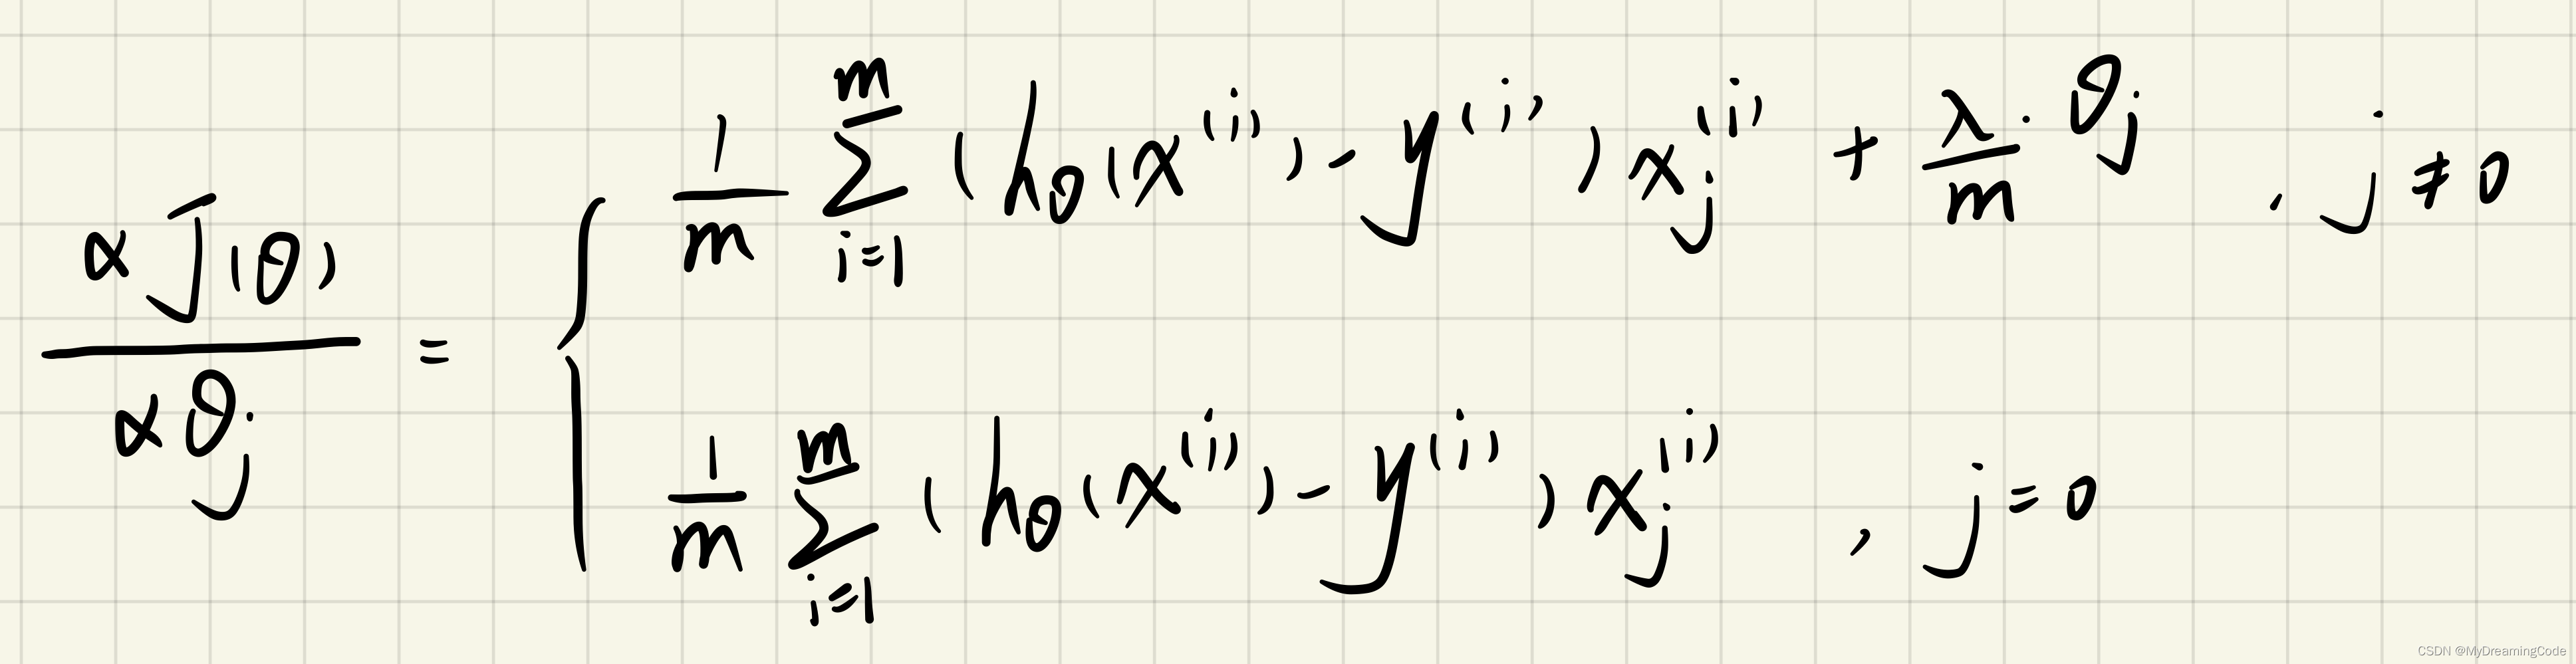 \frac{\alpha J(\theta)}{\alpha \theta_j} = \begin{cases} \frac{1}{m} \sum_{i=1}^{m} (h_\theta(x^{(i)}) - y^{(i)}) x_j^{(i)} + \frac{\lambda}{m} \cdot \theta_j , j \neq 0 \\ \frac{1}{m} \sum_{i=1}^{m} (h_\theta(x^{(i)}) - y^{(i)}) x_j^{(i)} , j = 0 \end{cases}
CSDN @MyDreamingCode